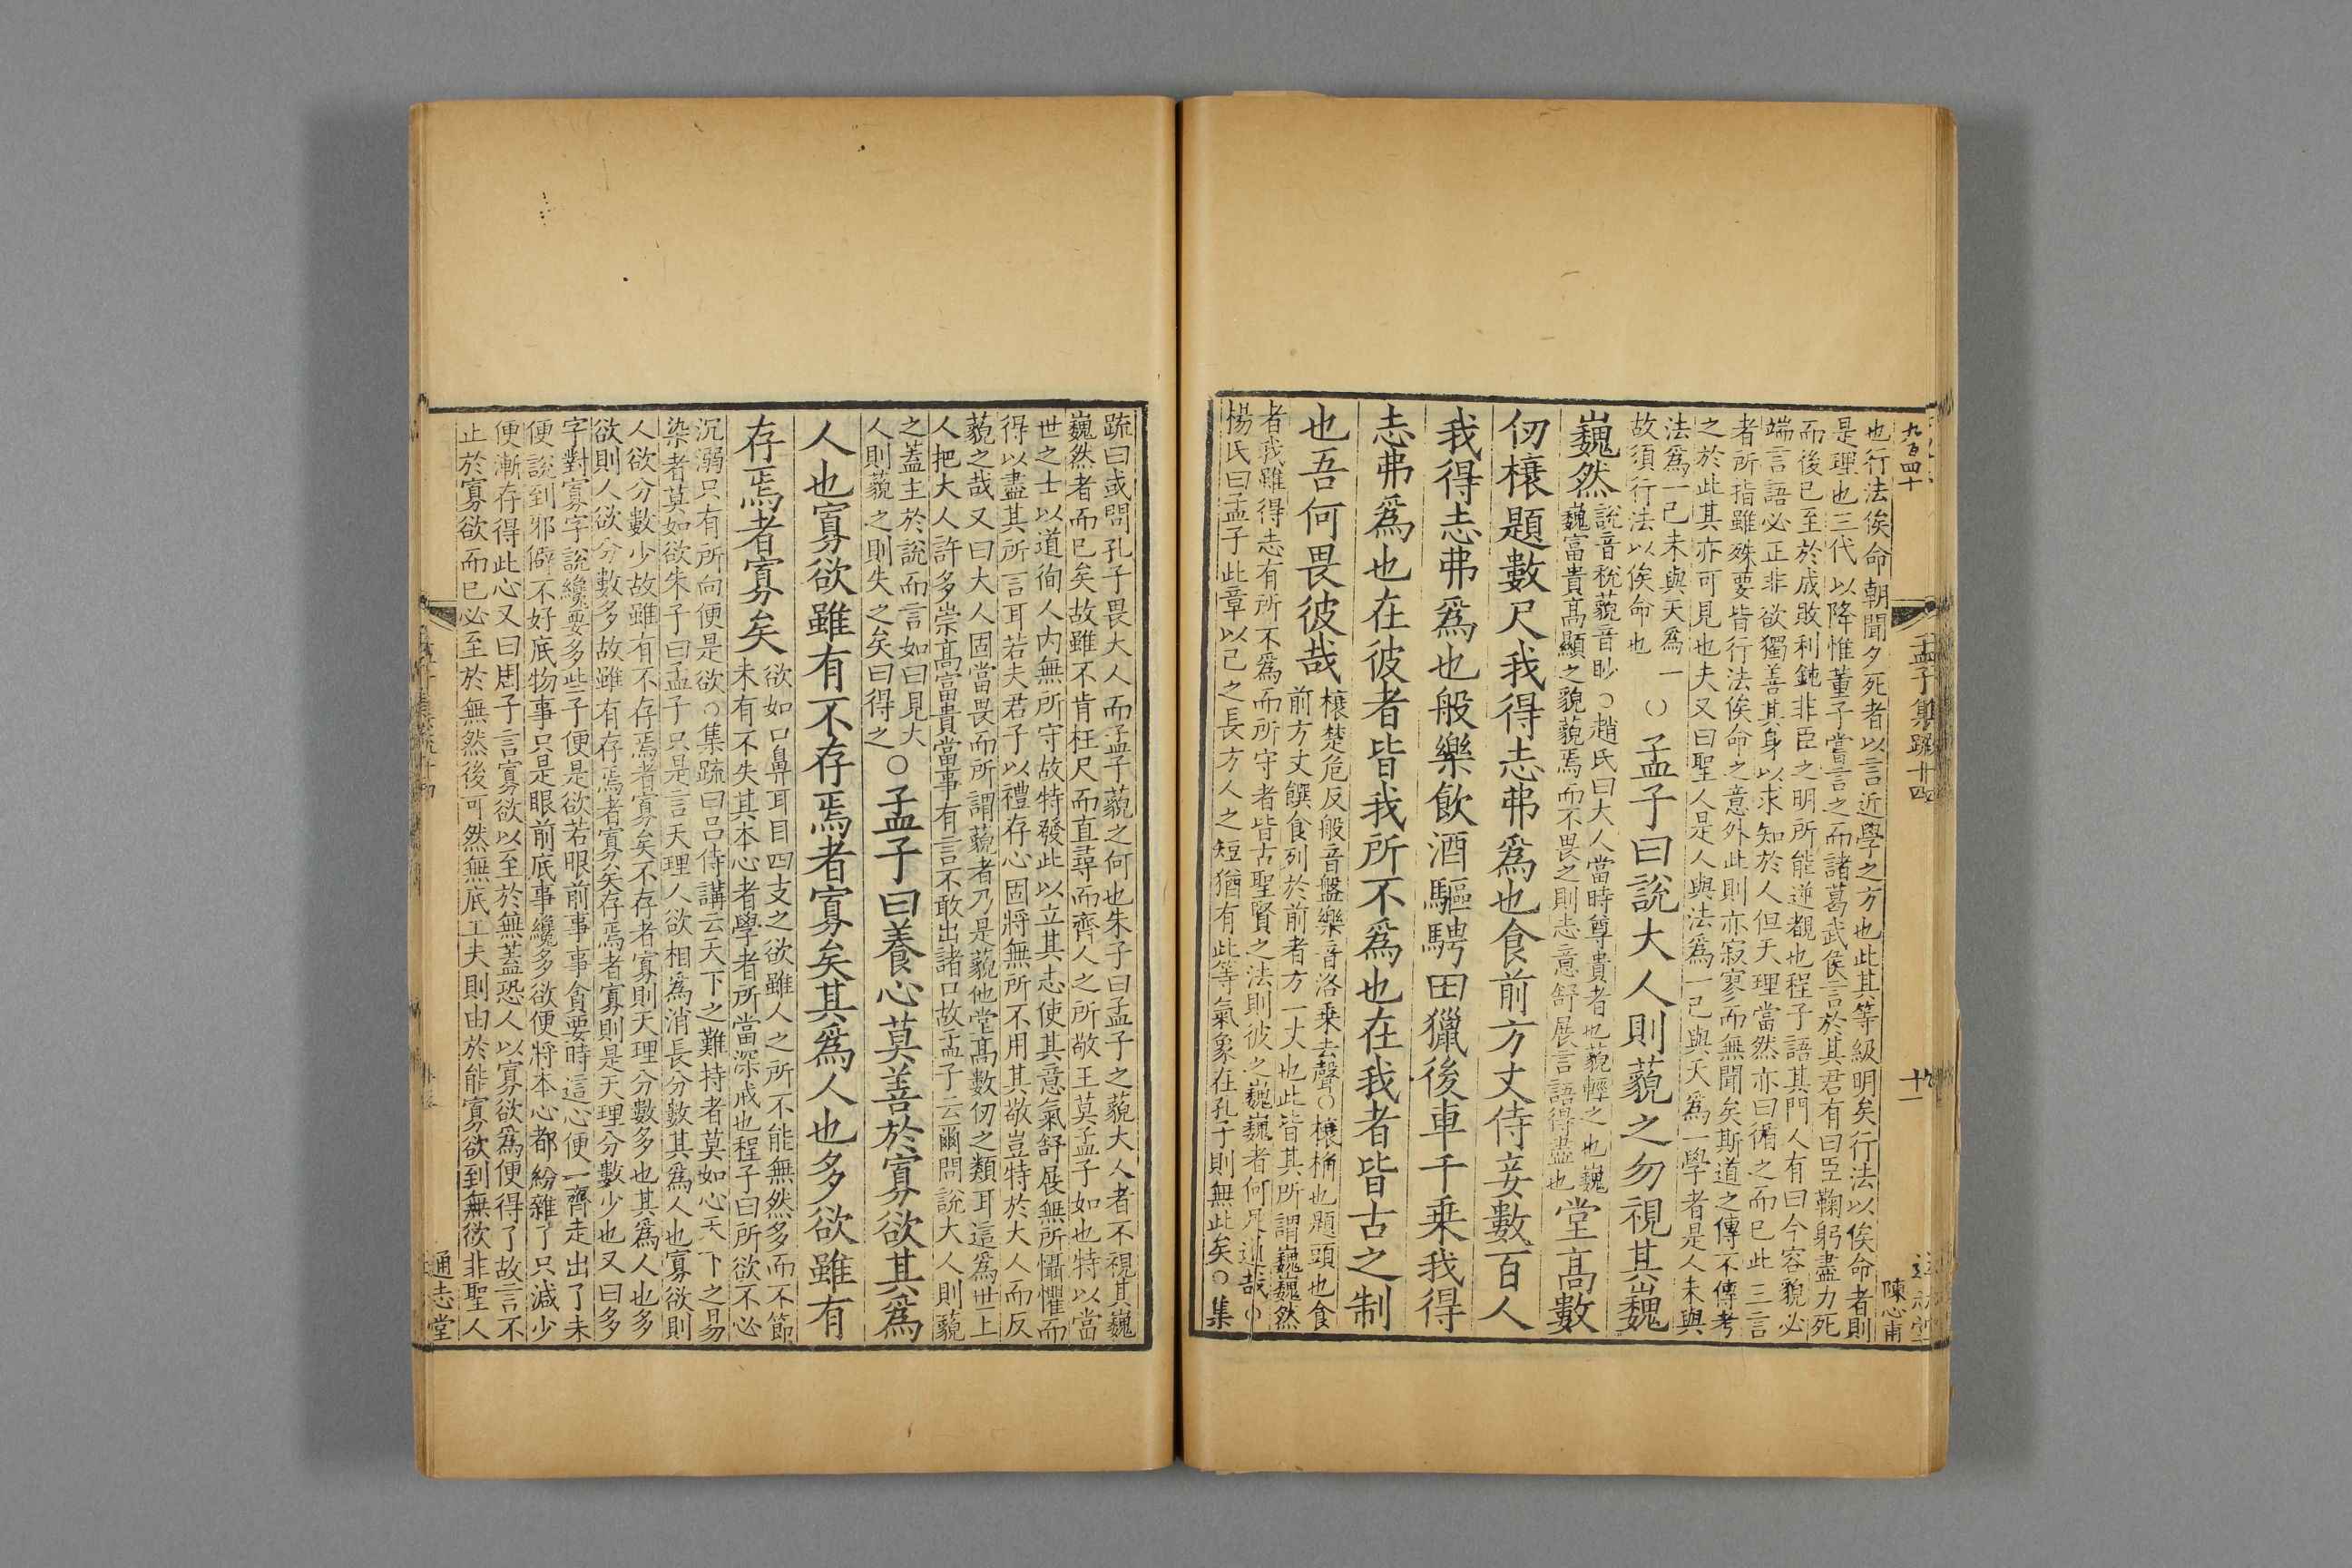 九百四十
孟子集疏十四
十一
陳心甫
也行法俟命朝聞夕死者以言近學之方也此其等級明矣行法以俟命者則
是理也三代以降惟董子嘗言之而諸葛武侯言於其君有曰臣鞠躬盡力死
而後已至於成敗利鈍非臣之明所能逆覩也程子語其門人有曰今容貌必
端言語必正非欲獨善其身以求知於人但天理當然亦曰循之而已此三言
者所指雖殊要皆行法俟命之意外此則亦寂寥而無聞矣斯道之傳不傳考
之於此其亦可見也夫又曰聖人是人與法爲一己與天爲一學者是人未與
法爲一己未與天爲一
故須行法以俟命也
○孟子曰說大人則藐之勿視其巍
巍然
說音稅藐音眇○趙氏曰大人當時尊貴者也藐輕之也巍
巍富貴高顯之貌藐焉而不畏之則志意舒展言語得盡也
堂高數
仞榱題數尺我得志弗爲也食前方丈侍妾數百人
我得志弗爲也般樂飲酒驅騁田獵後車千乘我得
志弗爲也在彼者皆我所不爲也在我者皆古之制
也吾何畏彼哉
榱楚危反般音盤樂音洛乘去聲○榱桷也題頭也食
前方丈饌食列於前者方一丈也此皆其所謂巍巍然
者我雖得志有所不爲而所守者皆古聖賢之法則彼之巍巍者何足道哉○
楊氏曰孟子此章以己之長方人之短猶有此等氣象在孔子則無此矣○集
疏曰或問孔子畏大人而孟子藐之何也朱子曰孟子之藐大人者不視其巍
巍然者而已矣故雖不肯枉尺而直尋而齊人之所敬王莫孟子如也特以當
世之士以道徇人内無所守故特發此以立其志使其意氣舒展無所懾懼而
得以盡其所言耳若夫君子以禮存心固將無所不用其敬豈特於大人而反
藐之哉又曰大人固當畏而所謂藐者乃是藐他堂高數仞之類耳這爲世上
人把大人許多崇高富貴當事有言不敢出諸口故孟子云爾問說大人則藐
之蓋主於說而言如曰見大
人則藐之則失之矣曰得之
○孟子曰養心莫善於寡欲其爲
人也寡欲雖有不存焉者寡矣其爲人也多欲雖有
存焉者寡矣
欲如口鼻耳目四支之欲雖人之所不能無然多而不節
未有不失其本心者學者所當深戒也程子曰所欲不必
沉溺只有所向便是欲○集疏曰呂侍講云天下之難持者莫如心天下之易
染者莫如欲朱子曰孟子只是言天理人欲相爲消長分數其爲人也寡欲則
人欲分數少故雖有不存焉者寡矣不存者寡則天理分數多也其爲人也多
欲則人欲分數多故雖有存焉者寡矣存焉者寡則是天理分數少也又曰多
字對寡字說纔要多些子便是欲若眼前事事貪要時這心便一齊走出了未
便說到邪僻不好底物事只是眼前底事纔多欲便將本心都紛雜了只減少
便漸存得此心又曰周子言寡欲以至於無蓋恐人以寡欲爲便得了故言不
止於寡欲而已必至於無然後可然無底工夫則由於能寡欲到無欲非聖人
通志堂